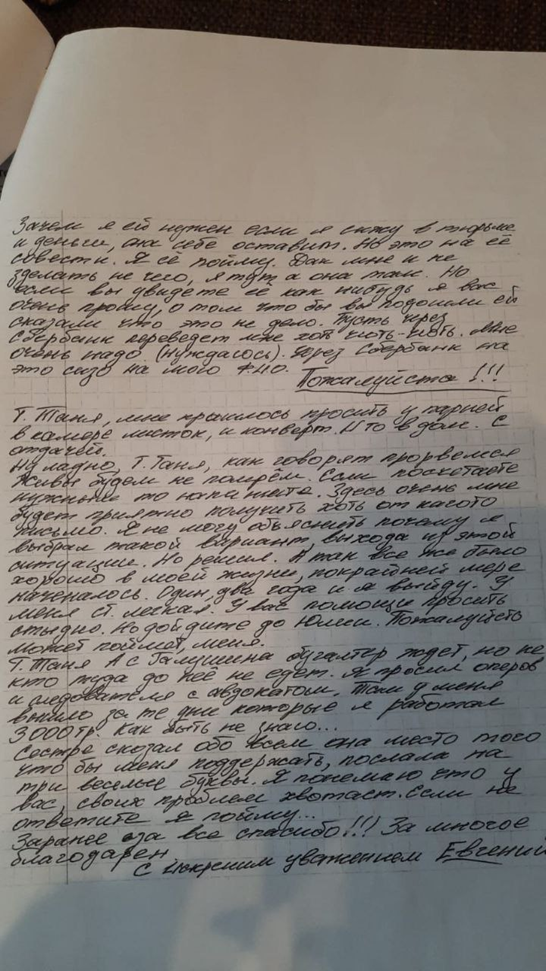 Зачем я ей нужен если я сижу в тюрьме
и деньги, она себе оставит. Но это на её
совести. Я её пойму. Дак мне и не
сделать не чего, я тут а она там. Но
если вы увидете её как нибудь я вас
очень прошу, о том что бы вы подошли ей
сказали что это не дело. Пусть через
Сбербанк переведет мне хоть чють-чють. Мне
очень надо. (нуждаюсь). Через Сбербанк на
это сизо на мого ФИО.
Пожалуйста!!!
Т. Таня, мне прышлось просить у парней
в камере листок, и конверт. И то в долг. С
отдачей.
Ну ладно, Т. Таня, как говорят прорвемся
живы будем не помрём. Если посчетаете
нужным то напишите. Здесь очень мне
будет приятно получить хоть от какого
письмо. Я не могу объяснить почему я
выбрал такой вариант, выхода из этой
ситуации. Но решил. А так все же было
хорошо в моей жизни, покрайней мере
началось. Один, два года и я выйду. У
меня ст. легкая. У вас помощи просить
стыдно. Но дойдите до Юлии. Пожалуйсть
может поймёт, меня.
Т. Таня А с Галушина бугалтер ждет, но не
кто туда до неё не едет. Я просил оперов
и следователя с адвокатом. Там у меня
вышло за те дни которые я работал
3000тр. Как быть не знаю...
Сестре сказал обо всем она место того
что бы меня поддержать, послала на
три веселые буквы. Я понемаю что у
вас, своих проблем хватает. Если не
ответите я пойму...
Заранее за все спасибо!!! За многое
благодарен
С искреним уважением Евгений